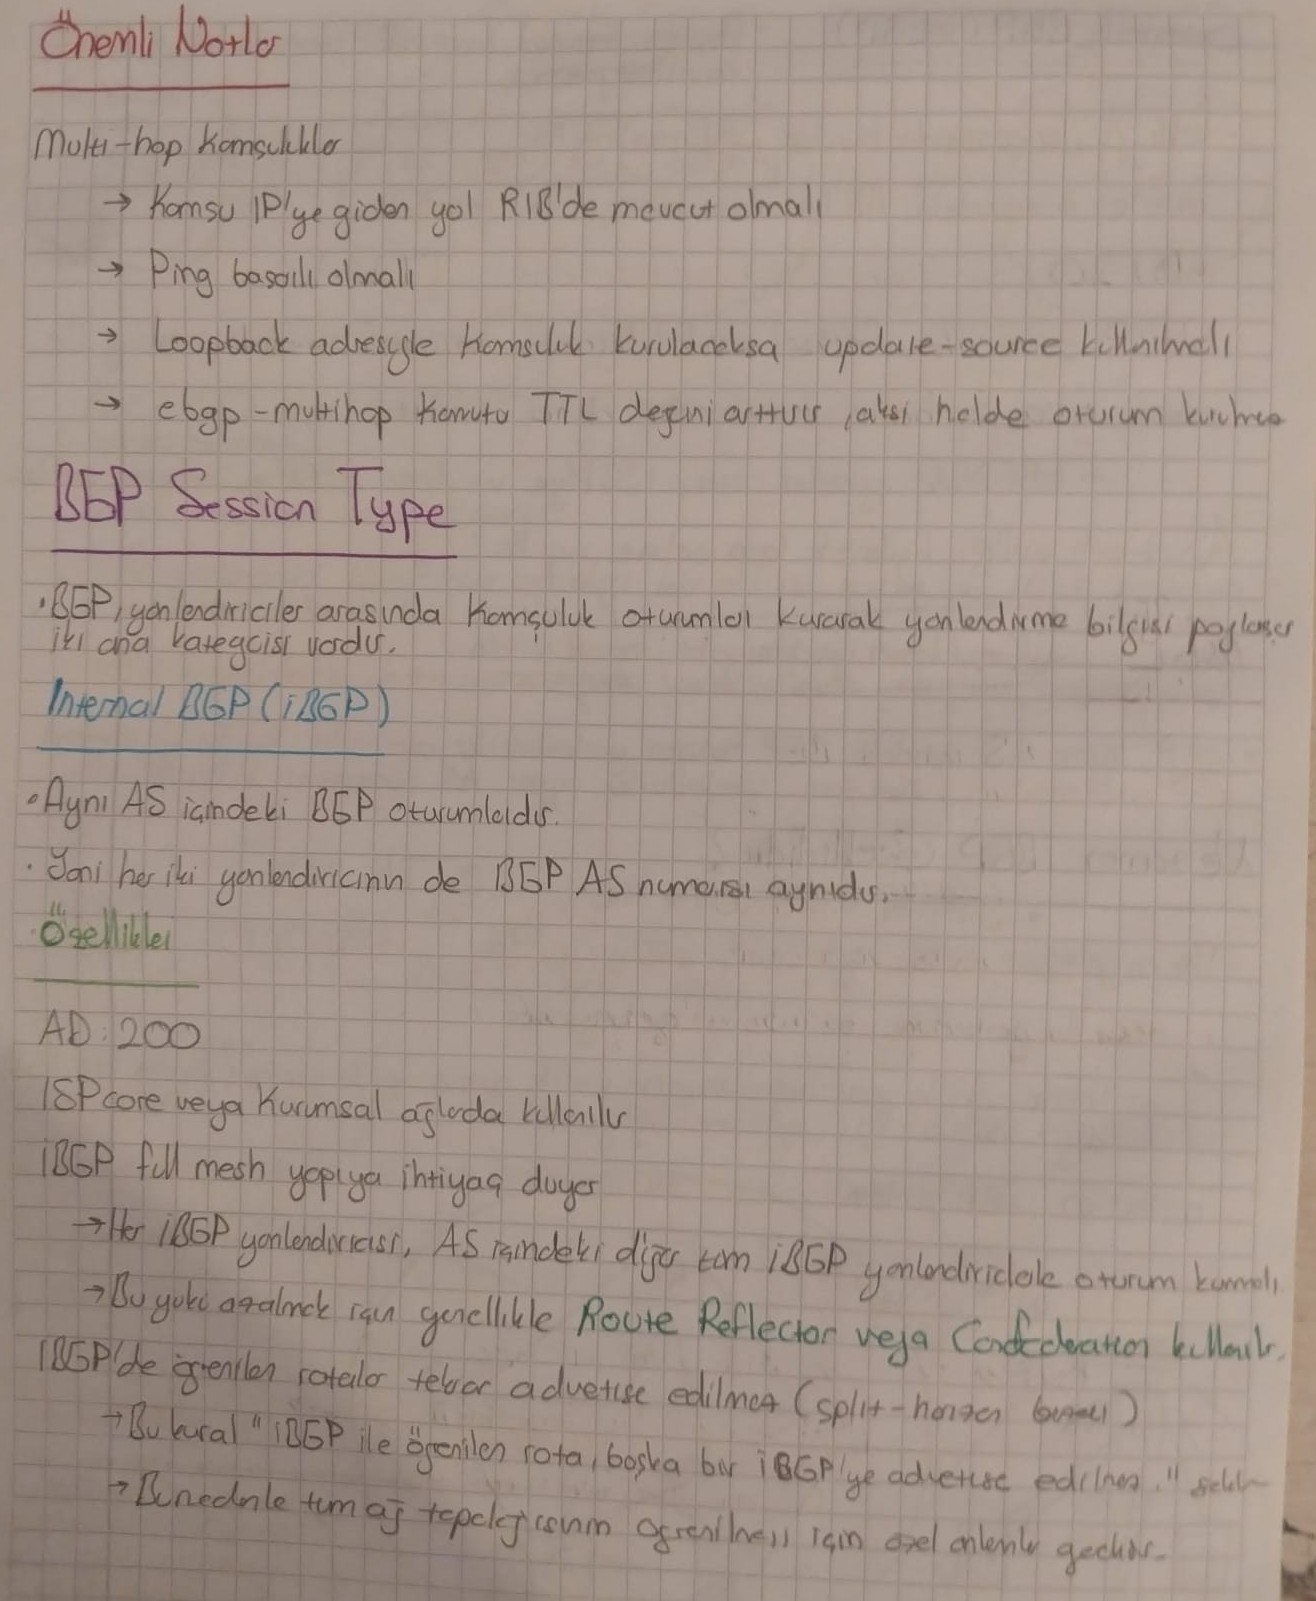 Önemli Notlar
Multi-hop Komşuluklar
→ Komsu IP'ye giden yol RIB'de mevcut olmalı
→ Ping basarılı olmalı
→ Loopback adresiyle Komsuluk kurulacaksa update-source kullanılmalı
→ ebgp-multihop Komutu TTL degerini arttırır, aksi halde oturum kurulmaz
BGP Session Type
• BGP, yönlendiriciler arasında Komşuluk oturumları kurarak yönlendirme bilgisi paylaşır
iki ana kategorisi vardır.
Internal BGP (iBGP)
• Aynı AS içindeki BGP oturumlarıdır.
• Yani her iki yönlendiricinin de BGP AS numarası aynıdır.
Özellikler
AD: 200
ISP core veya Kurumsal ağlarda kullanılır
iBGP full mesh yapıya ihtiyaç duyar
→ Her iBGP yönlendiricisi, AS içindeki diğer tüm iBGP yönlendiricilerle oturum kurmalı
→ Bu yükü azaltmak için genellikle Route Reflector veya Confederation kullanılır.
IBGP'de öğrenilen rotalar tekrar advertise edilmez (split-horizon kuralı)
→ Bu kural "iBGP ile öğrenilen rota, başka bir iBGP'ye advertise edilmez."
→ Bu nedenle tüm ağ topolojisinin öğrenilmesi için özel önlemler gerekir.